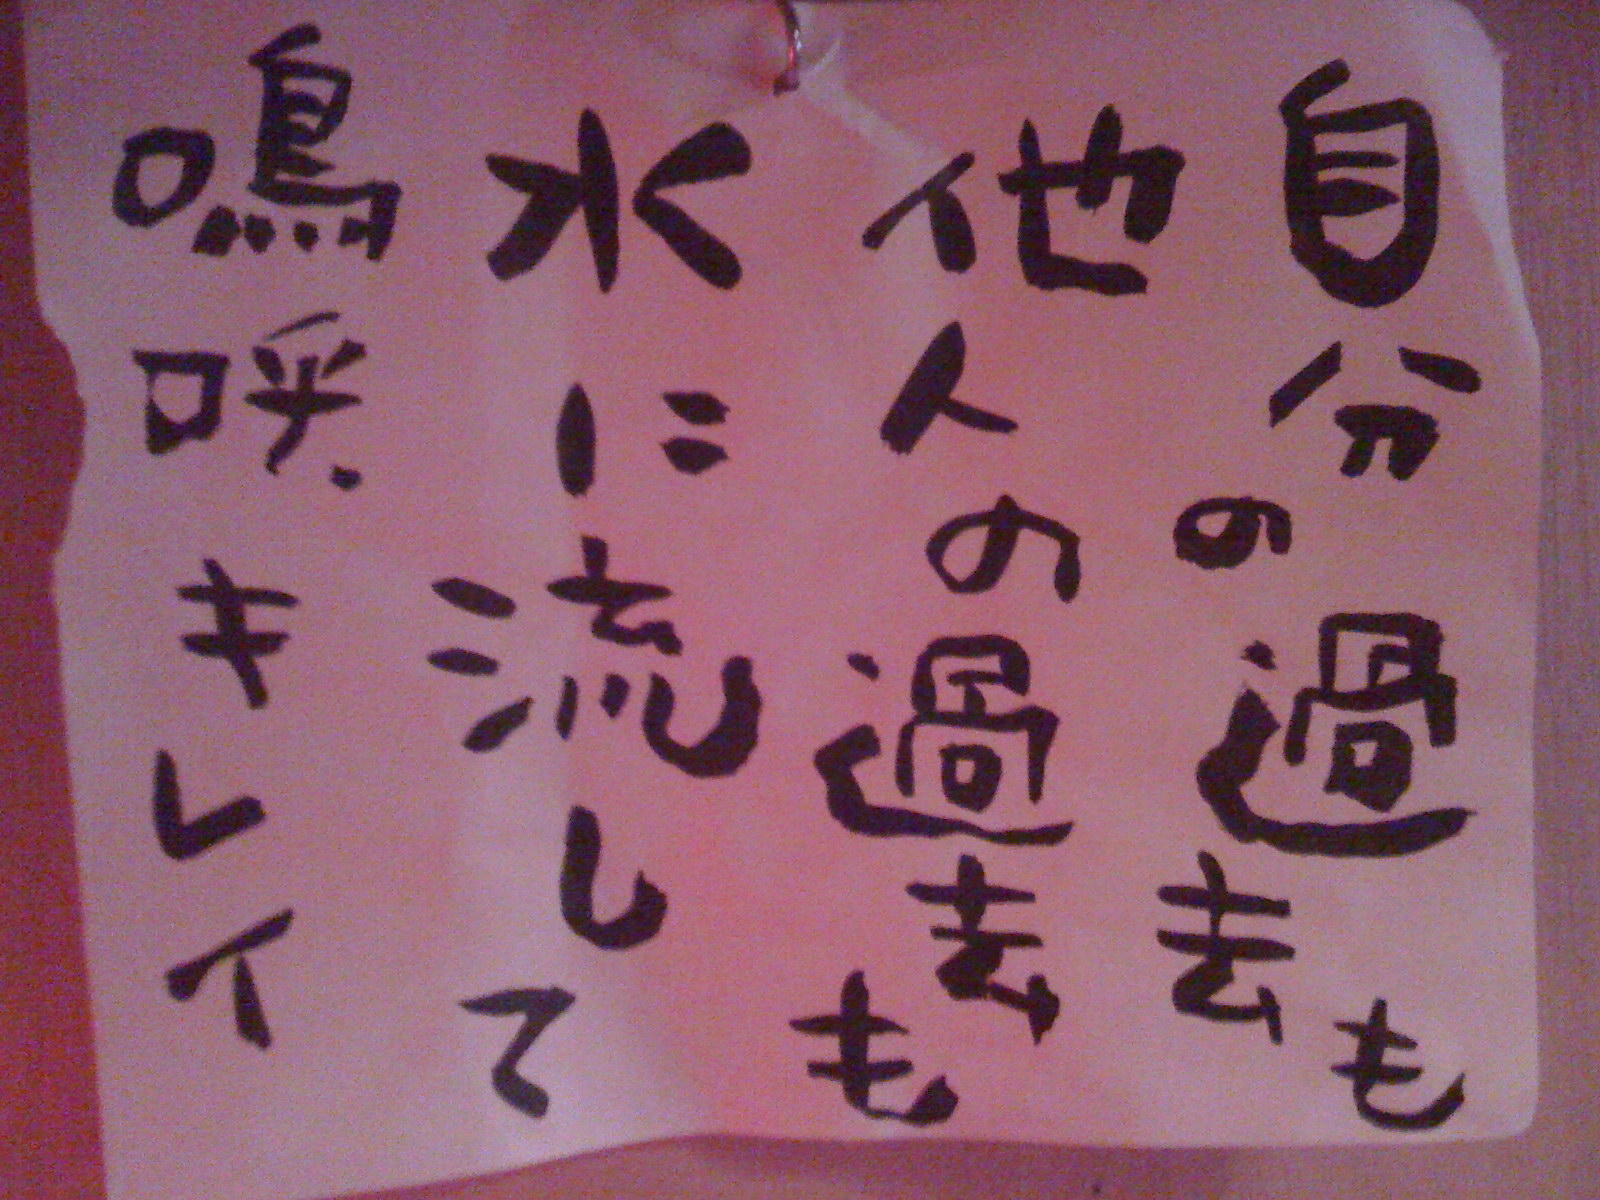 自分の過去も
他人の過去も
水に流して
鳴呼.キレイ